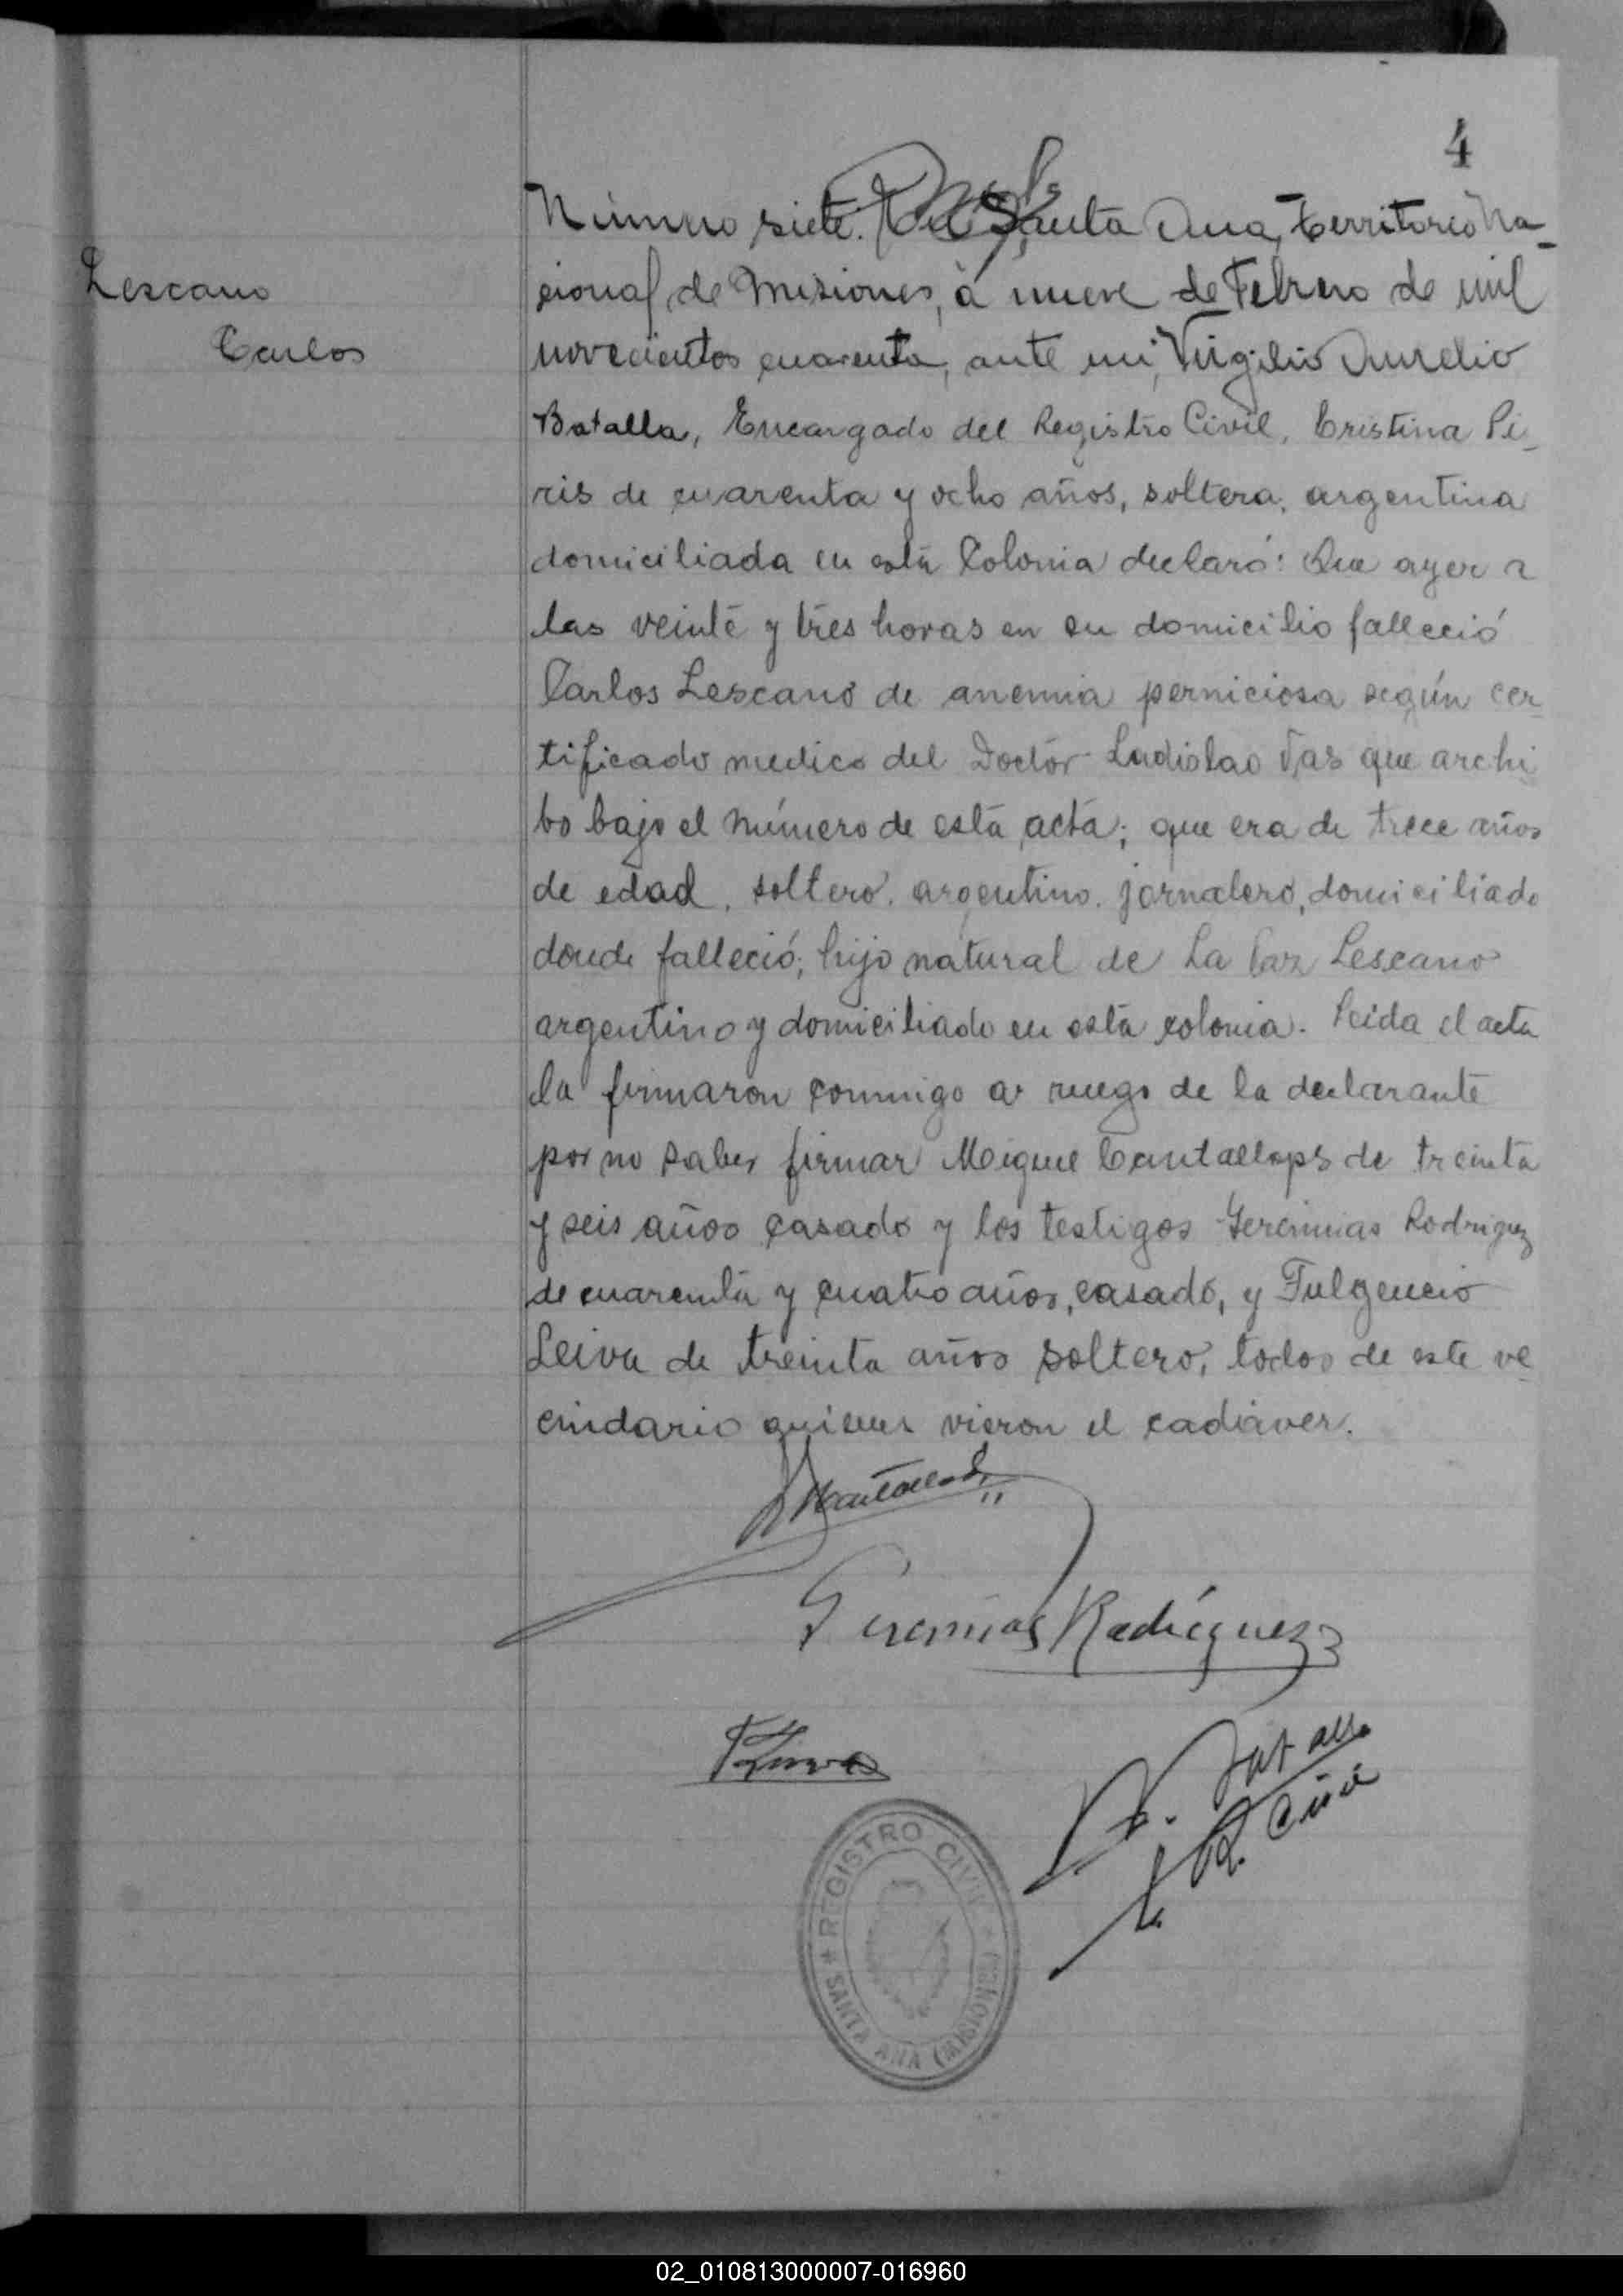 4
Número siete. En Santa Ana, Territorio Na-
Lescano
cional de Misiones, á nueve de Febrero de mil
Carlos
novecientos cuarenta, ante mi, Virgilio Aurelio
Batalla, Encargado del Registro Civil, Cristina Pi-
ris de cuarenta y ocho años, soltera, argentina
domiciliada en esta Colonia declaró: Que ayer a
las veinte y tres horas en su domicilio falleció
Carlos Lescano de anemia perniciosa según cer-
tificado medico del Doctor Ladislao que archi
bo bajo el número de esta acta; que era de trece años
de edad, soltero, argentino, jornalero, domiciliado
donde falleció; hijo natural de La Paz Lescano
argentino y domiciliado en esta colonia. Leida el acta
la firmaron conmigo a ruego de la declarante
por no saber firmar Miguel Cantallops de treinta
y seis años casado y los testigos Geremias Rodriguez
de cuarenta y cuatro años, casado, y Fulgencio
Leiva de treinta años soltero, todos de este ve
cindario quienes vieron el cadáver.
Geremias Rodríguez
REGISTRO CIVIL
SANTA ANA (MISIONES)
02_010813000007-016960